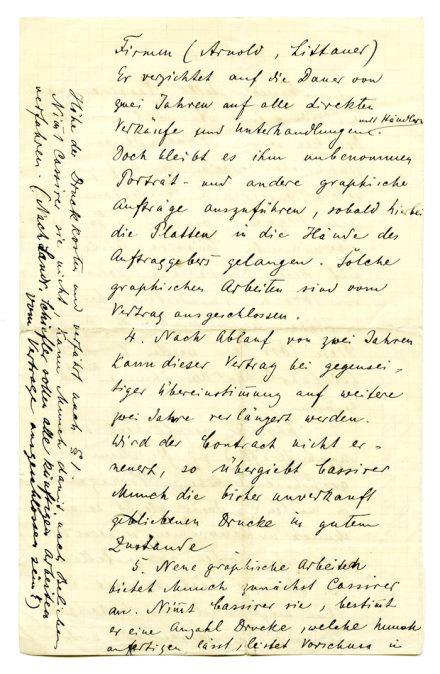 Firmen (Arnold, Littauer)
Er verzichtet auf die Dauer von
zwei Jahren auf alle direkten
Verkäufe und Unterhandlungen mit Händlern.
Doch bleibt es ihm unbenommen
Porträt- und andere graphische
Aufträge auszuführen, sobald hierbei
die Platten in die Hände des
Auftraggebers gelangen. Solche
graphischen Arbeiten sind vom
Vertrag ausgeschlossen.
4. Nach Ablauf von zwei Jahren
kann dieser Vertrag bei gegensei-
tiger Übereinstimung auf weitere
zwei Jahre verlängert werden.
Wird der Contract nicht er-
neuert, so übergiebt Cassirer
Munch die bisher unverkauft
gebliebenen Drucke in gutem
Zustande
5. Neue graphische Arbeiten
bietet Munch zunächst Cassirer
an. Nimt Cassirer sie, bestimt
er eine Anzahl Drucke, welche Munch
anfertigen lässt, leistet Vorschuss in
Höhe der Druckkosten und verfährt nach § 1.
Nimt Cassirer sie nicht, kann Munch damit nach Belieben
verfahren. (Nach Landr. Schiefler sollen alle künftigen Arbeiten
vom Vertrage ausgeschlossen sein!)